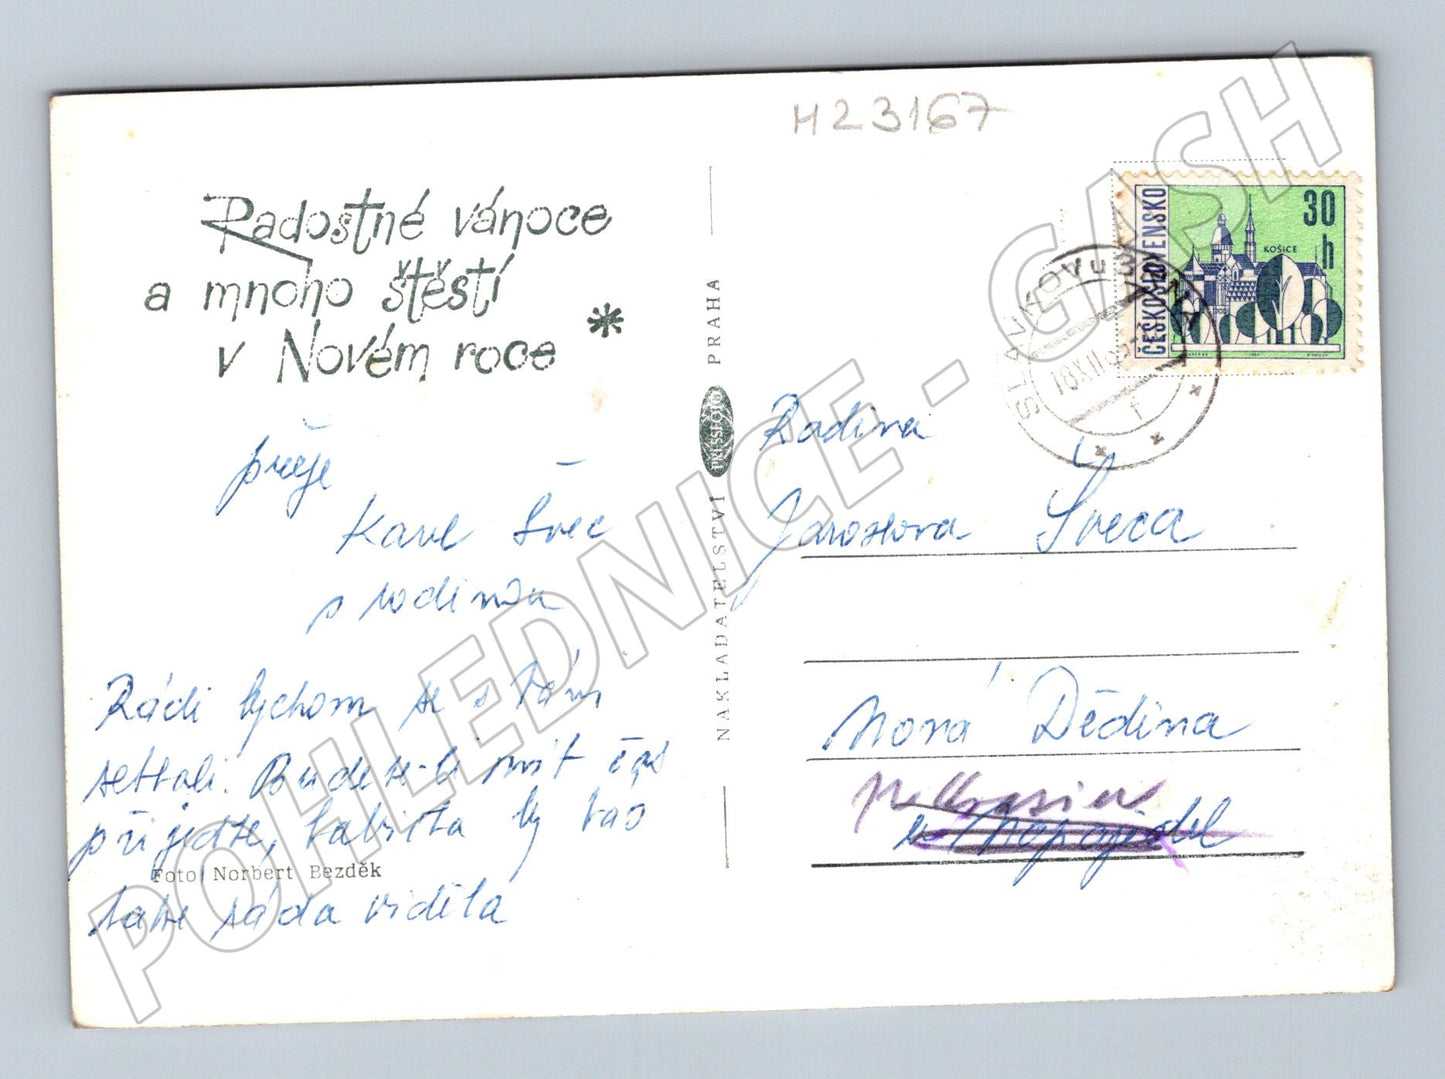 H23167
Radostné vánoce
a mnoho štěstí
v Novém roce *
přeje
Karel Švec
s rodinou
Rádi bychom se s Vámi
setkali. Budete-li mít čas
přijeďte, babička by Vás
také ráda viděla
Foto Norbert Bezděk
NAKLADATELSTVÍ PRESSFOTO PRAHA
ČESKOSLOVENSKO
30 h
KOŠICE
SLAVKOV u BRNA
Rodina
Jaroslava Šveca
Nová Dědina
u Napajedel
POHLEDNICE - GASH